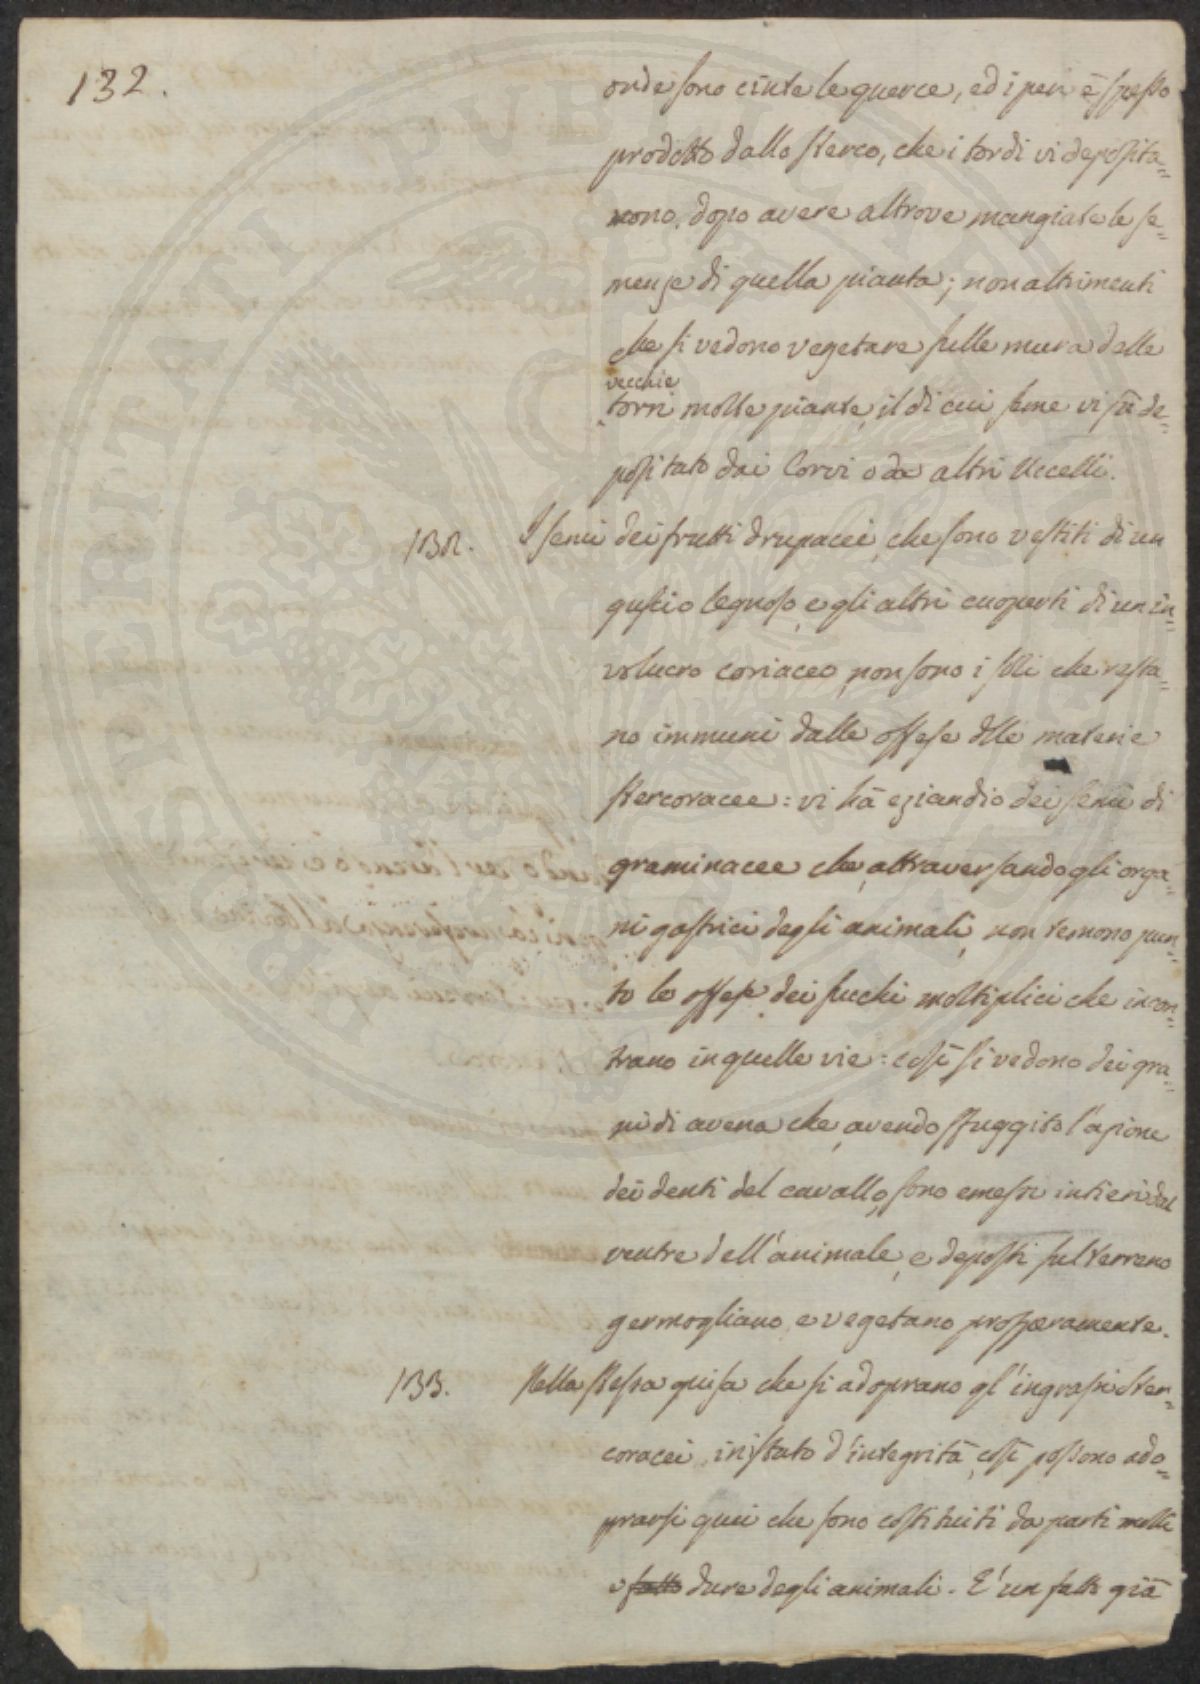 132.
onde sono cinte le querce, ed i peri è spesso
prodotto dallo sterco, che i tordi vi deposita=
rono, dopo avere altrove mangiate le se=
menze di quella pianta; non altrimenti
che si vedono vegetare sulle mura delle
vecchie
torri molte piante, il di cui seme vi fù de=
positato dai Corvi o da altri Uccelli.
132. I semi dei frutti drupacei, che sono vestiti di un
guscio legnoso, e gli altri cuoperti di un in=
volucro coriaceo, non sono i soli che resta=
no immuni dalle offese dlle materie
stercoracee: vi hà eziandio dei semi di
graminacee che, attraversando gli orga=
ni gastrici degli animali, non temono pun=
to le offese dei succhi moltiplici che incon=
trano in quelle vie: così si vedono dei gra=
ni di avena che, avendo sfuggito l'azione
dei denti del cavallo, sono emessi intieri dal
ventre dell'animale, e deposti sul terreno
germogliano, e vegetano prosperamente.
133. Nella stessa guisa che si adoprano gl'ingrassi ster=
coracei in istato d'integrità, così possono ado=
prarsi quei che sono costituiti da parti molli
o fatto dure degli animali. E' un fatto già
SPERITATI PVBLICAE